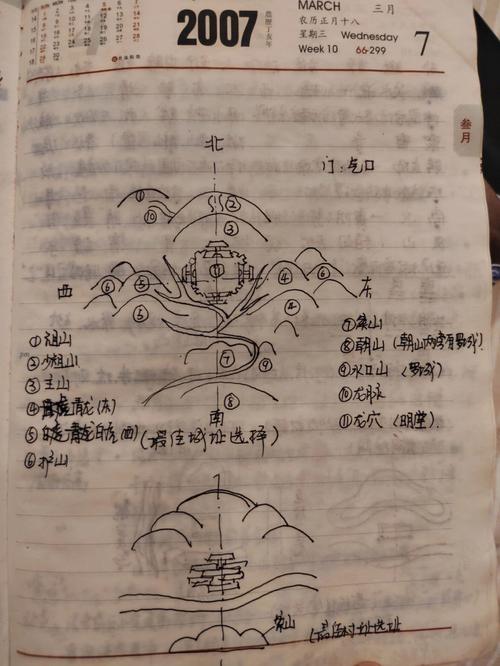 2007
MARCH 三月
农历正月十八
星期三 Wednesday
Week 10 66-299
7
叁月
北
门:气口
① ② ③ ⑩
⑪
西
东
⑥ ⑤ ④ ⑥
⑤ ④
⑦ ⑨
⑧
南
(最佳城址选择)
①祖山
②少祖山
③主山
④青龙(东)
⑤白虎(西)
⑥护山
⑦案山
⑧朝山(朝山两旁有罗城)
⑨水口山(罗城)
⑩龙脉
⑪龙穴(明堂).
案山
(最佳村址选址